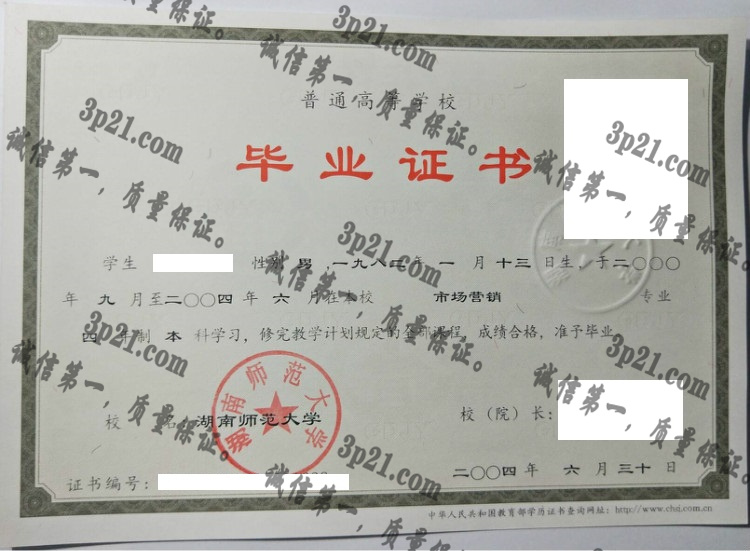 普通高等学校
毕业证书
学生 性别 男 一九八二年 一 月 十三 日生，于二〇〇〇
年 九 月至二〇〇四年 六 月在本校 市场营销 专业
四 年制 本 科学习，修完教学计划规定的全部课程，成绩合格，准予毕业。
校 名：湖南师范大学 校（院）长：
湖南师范大学
证书编号： 二〇〇四年 六 月 三十 日
中华人民共和国教育部学历证书查询网址：http://www.chsi.com.cn
3p21.com
诚信第一，质量保证。
3p21.com
诚信第一，质量保证。
3p21.com
诚信第一，质量保证。
3p21.com
诚信第一，质量保证。
3p21.com
诚信第一，质量保证。
3p21.com
诚信第一，质量保证。
3p21.com
诚信第一，质量保证。
3p21.com
诚信第一，质量保证。